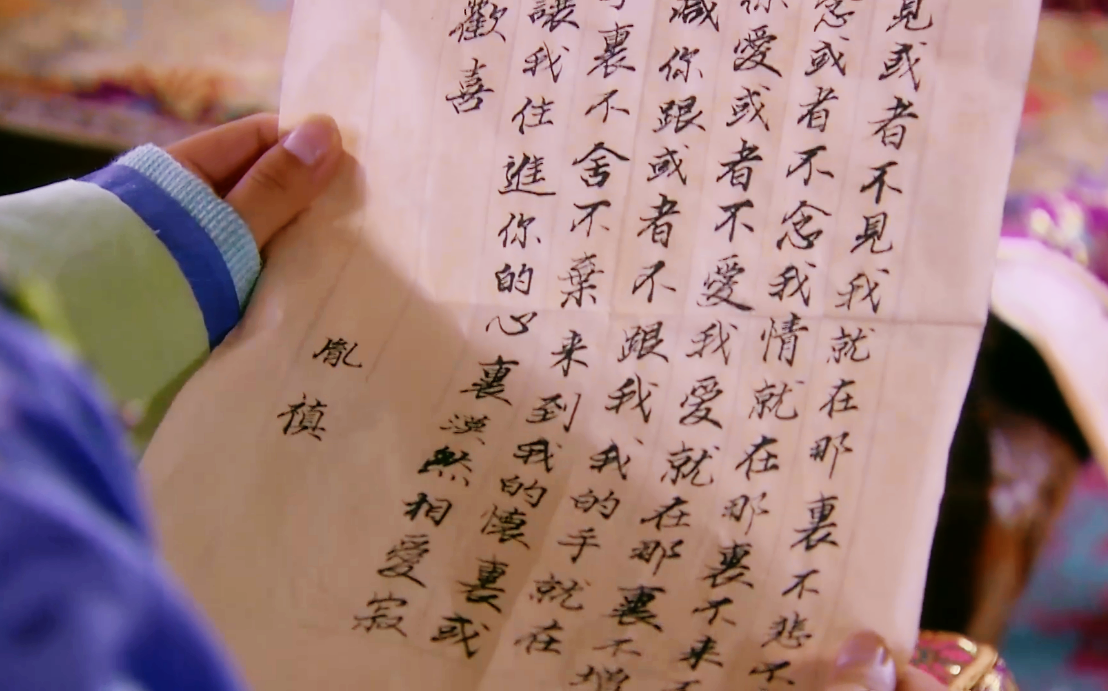 見或者不見我就在那裏不悲不
念或者不念我情就在那裏不来
你愛或者不愛我愛就在那裏不增
減你跟或者不跟我我的手就在
裏不舍不棄来到我的懷裏或
讓我住進你的心裏漠然相愛寂
歡喜
胤禎